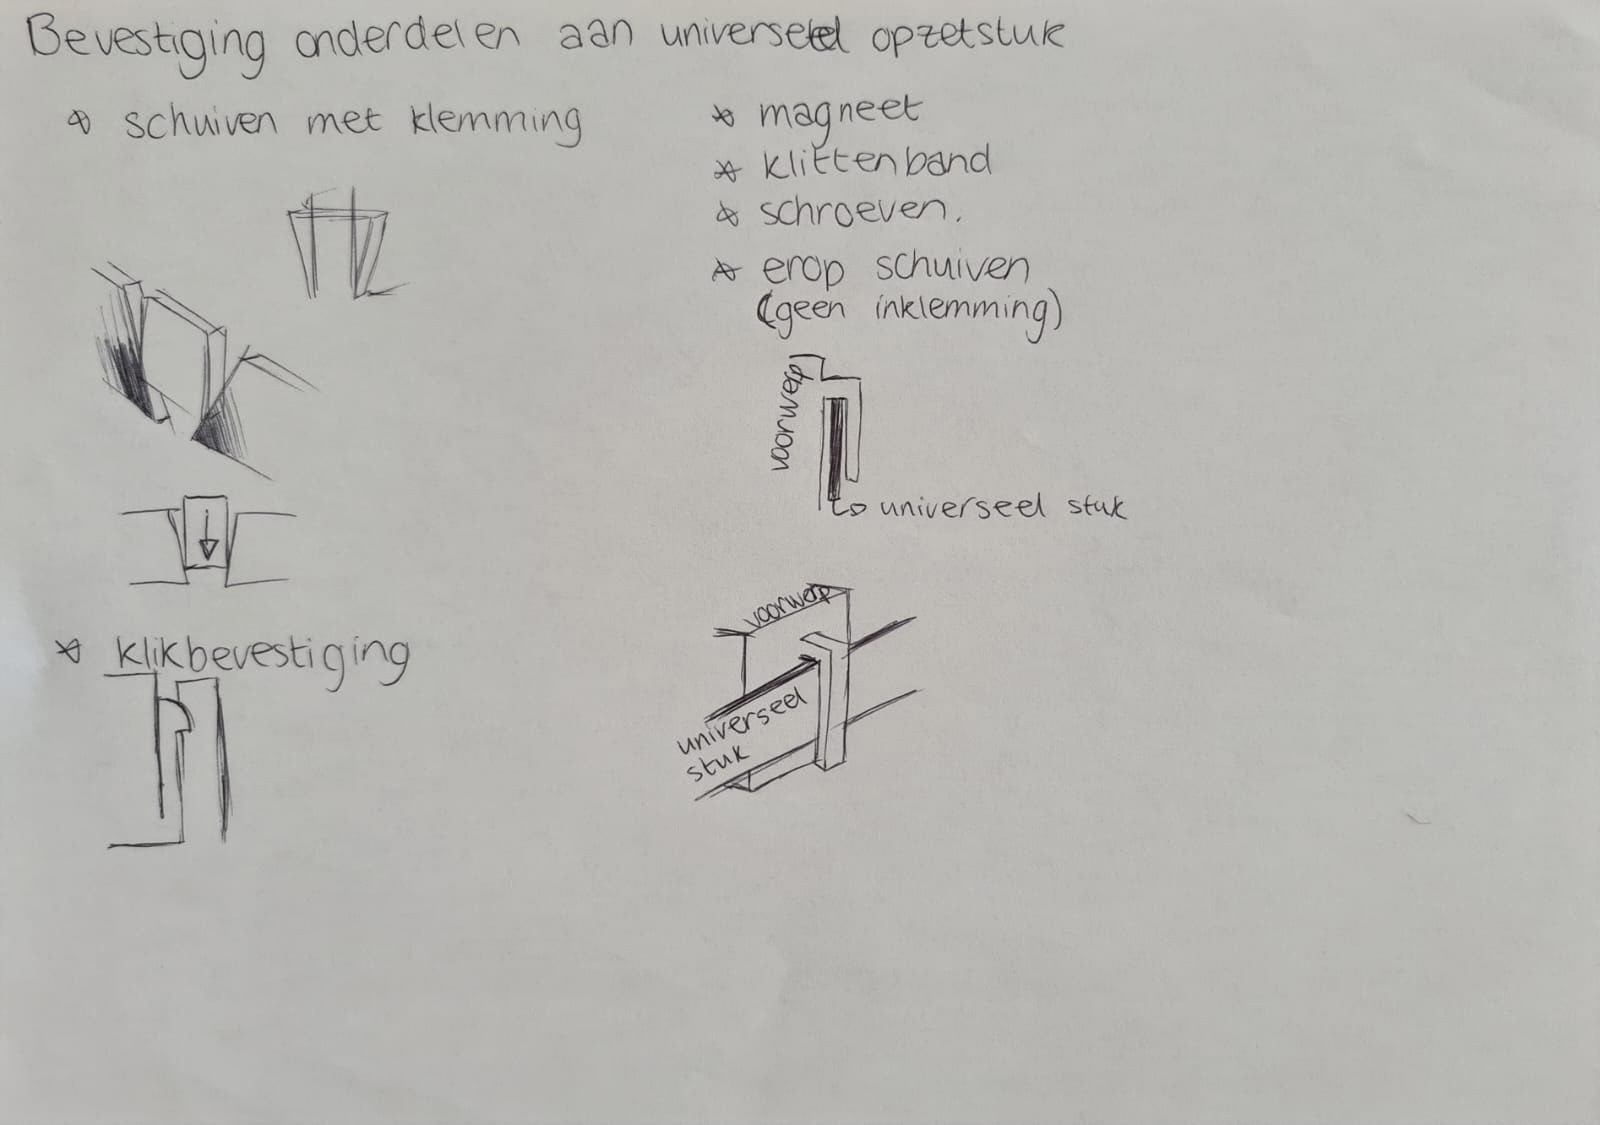 Bevestiging onderdelen aan universeel opzetstuk
* schuiven met klemming
* klikbevestiging
* magneet
* klittenband
* schroeven.
* erop schuiven
(geen inklemming)
voorwerp
universeel stuk
voorwerp
universeel
stuk